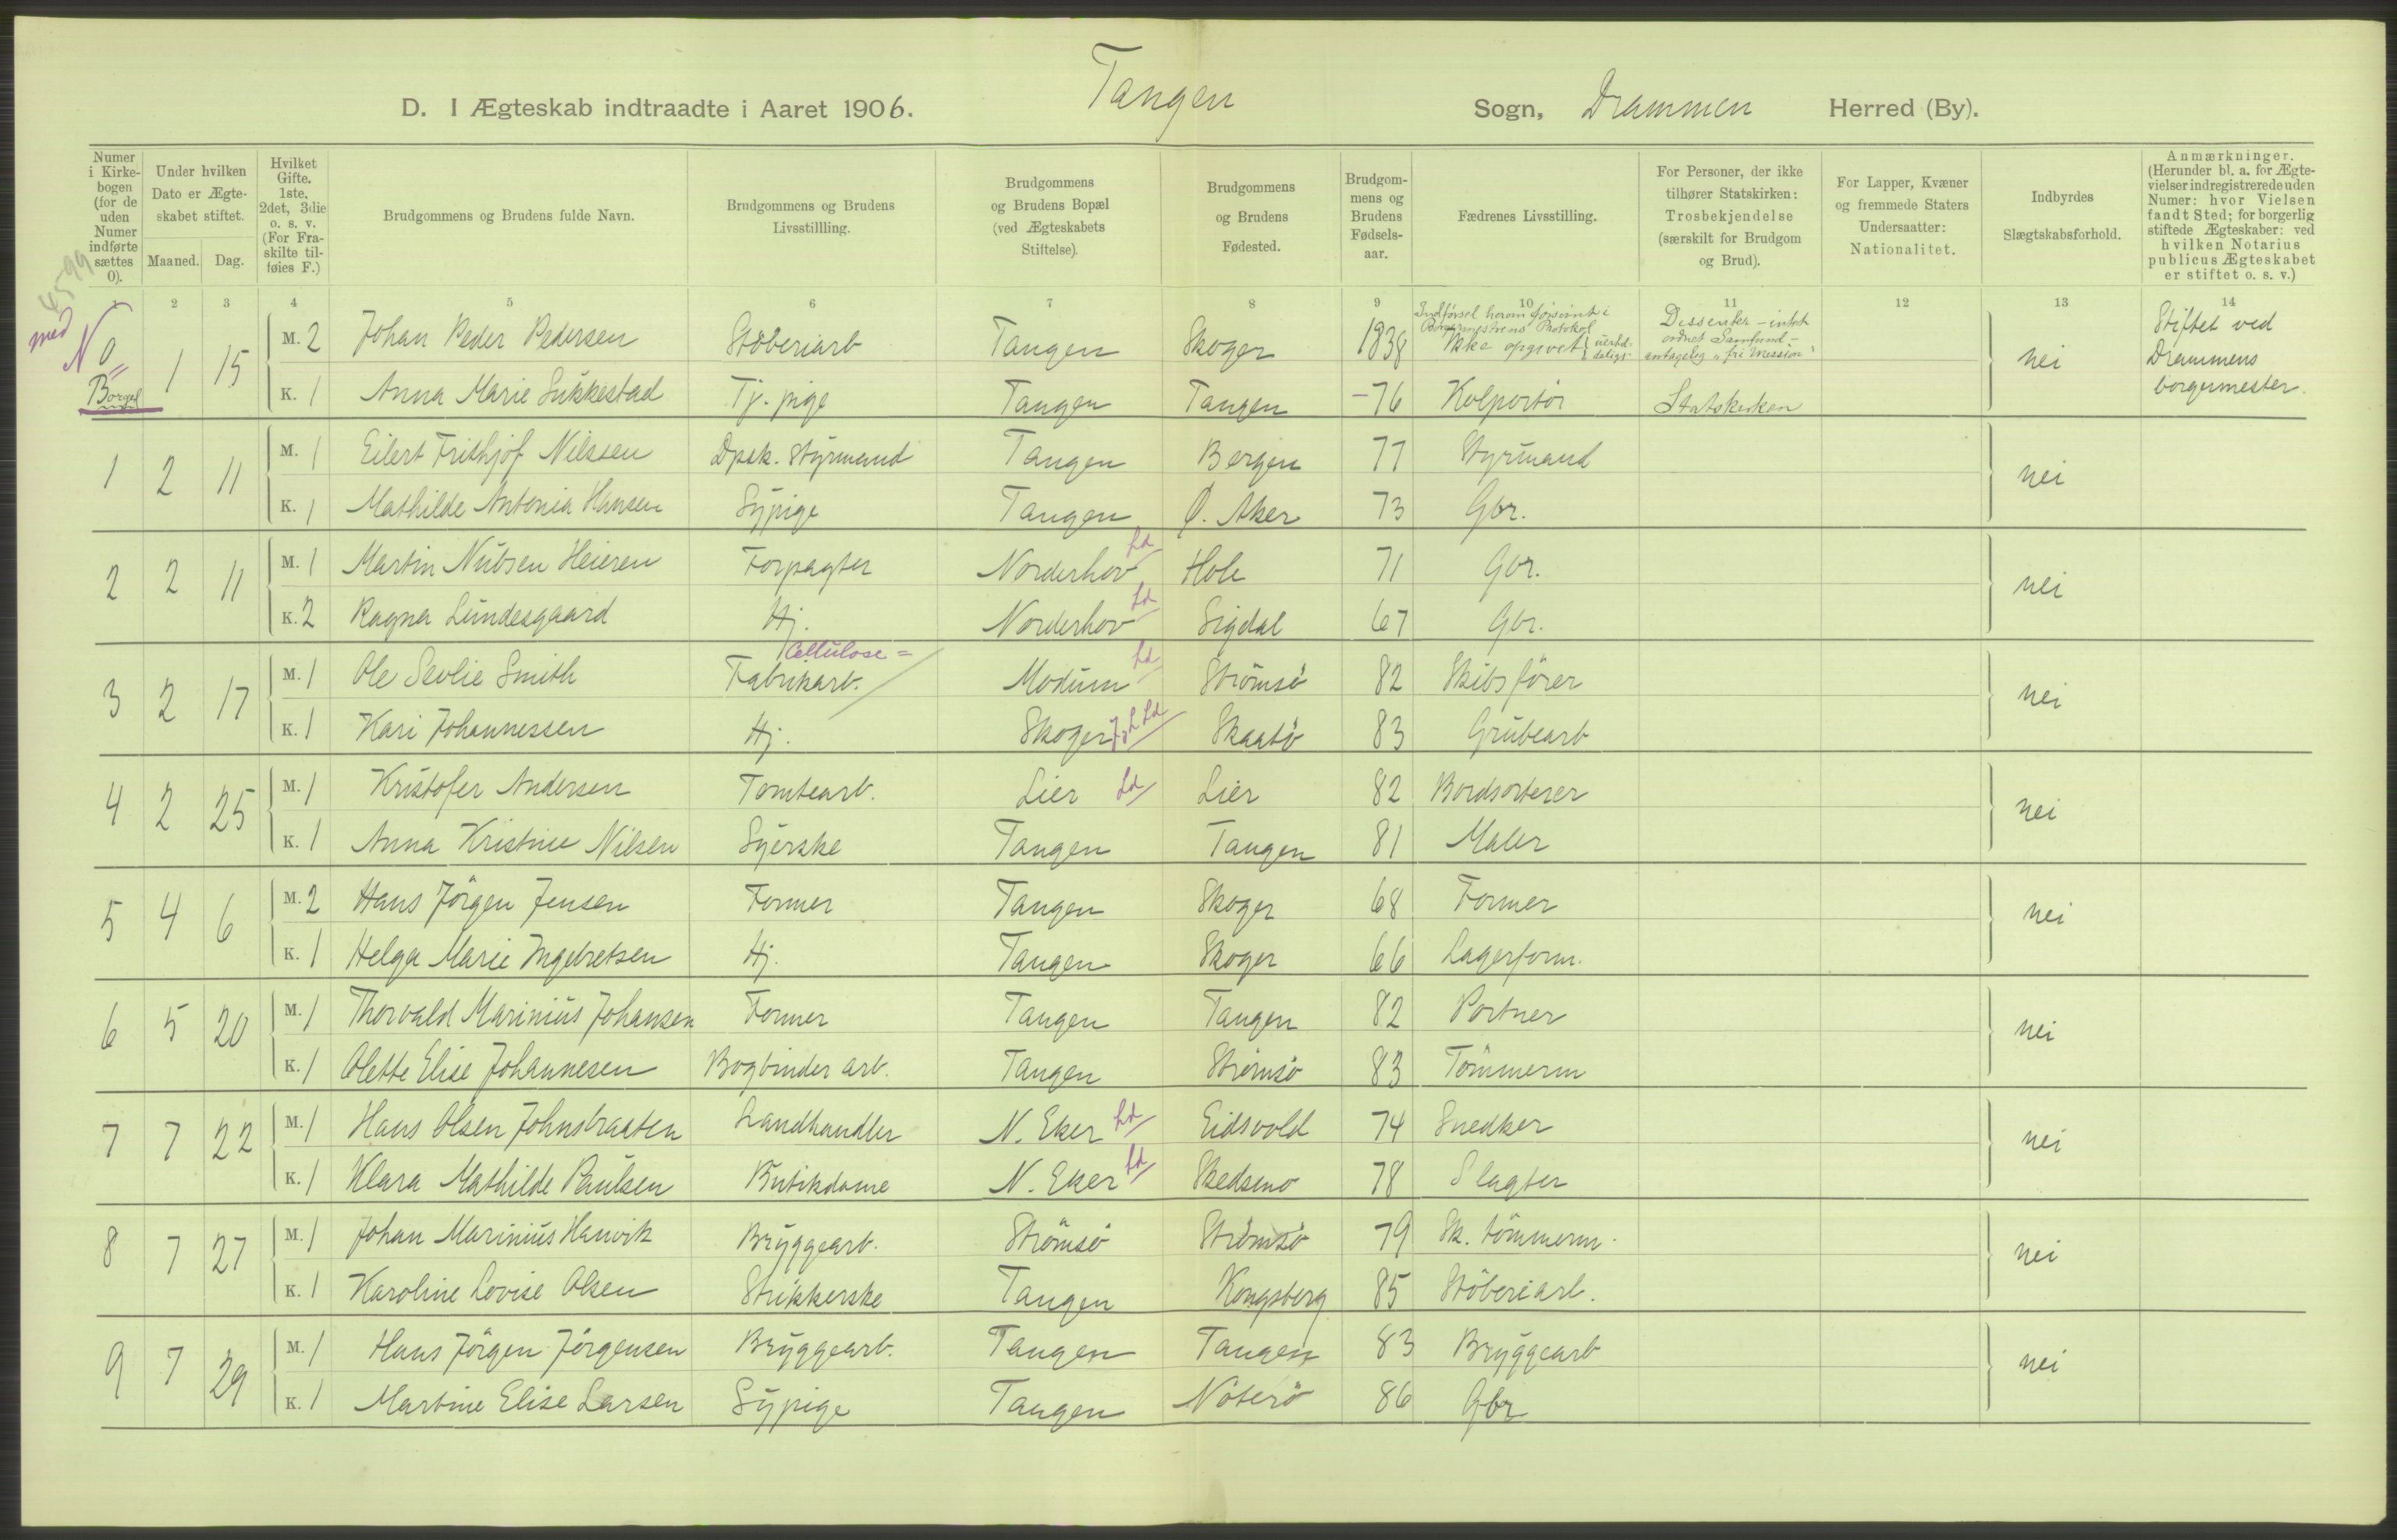 Tangen
D. I Ægteskab indtraadte i Aaret 1906. Sogn, Drammen Herred (By).
Numer i Kirkebogen (for de uden Numer indførte sættes 0).
Under hvilken Dato er Ægteskabet stiftet.
Maaned. Dag.
Hvilket Gifte. 1ste, 2det, 3die o. s. v. (For Fraskilte tilføies F.)
Brudgommens og Brudens fulde Navn.
Brudgommens og Brudens Livsstillling.
Brudgommens og Brudens Bopæl (ved Ægteskabets Stiftelse).
Brudgommens og Brudens Fødested.
Brudgommens og Brudens Fødselsaar.
Fædrenes Livsstilling.
For Personer, der ikke tilhører Statskirken: Trosbekjendelse (særskilt for Brudgom og Brud).
For Lapper, Kvæner og fremmede Staters Undersaatter: Nationalitet.
Indbyrdes Slægtskabsforhold.
Anmærkninger. (Herunder bl. a. for Ægtevielser indregistrerede uden Numer: hvor Vielsen fandt Sted; for borgerlig stiftede Ægteskaber: ved hvilken Notarius publicus Ægteskabet er stiftet o. s. v.)
1 2 3 4 5 6 7 8 9 10 11 12 13 14
med N 4599
0 Borgel 1 15 M. 2 Johan Peder Pedersen Støberiarb Tangen Skoger 1838 Ikke opgivet nei Stiftet ved Drammens borgermester.
Indførsel herom forsømt i Borgermestrens Protokol
Dissenter - intet ordnet Samfund - antagelig "fri Mission"
K. 1 Anna Marie Sukkestad Tj. pige Tangen Tangen -76 Kolportör Statskirken
1 2 11 M. 1 Eilert Frithjof Nilssen Dpsk. Styrmand Tangen Bergen 77 Styrmand nei
K. 1 Mathilde Antonia Hansen Sypige Tangen Ø. Aker 73 Gbr.
2 2 11 M. 1 Martin Nubsen Heieren Forpagter Norderhov Ld Hole 71 Gbr. nei
K. 2 Ragna Lundesgaard Hj. Norderhov Ld Sigdal 67 Gbr.
3 2 17 M. 1 Ole Sevlie Smith Cellulose= Fabrikarb. Modum Ld Strömsö 82 Skibsförer nei
K. 1 Kari Johannessen Hj. Skoger Ld Skaatö 83 Grubearb
4 2 25 M. 1 Kristofer Andersen Tomtearb. Lier Ld Lier 82 Bordsorterer nei
K. 1 Anna Kristine Nilsen Syerske Tangen Tangen 81 Maler
5 4 6 M. 2 Hans Jörgen Jensen Former Tangen Skoger 68 Former nei
K. 1 Helga Marie Ingebretsen Hj. Tangen Skoger 66 Lagerform.
6 5 20 M. 1 Thorvald Marinius Johansen Former Tangen Tangen 82 Portner nei
K. 1 Olette Elise Johannesen Bogbinder arb. Tangen Strömsö 83 Tömmerm
7 7 22 M. 1 Hans Olsen Johnsbraaten Landhandler N. Eker Ld Eidsvold 74 Snedker nei
K. 1 Klara Mathilde Paulsen Butikdame N. Eker Ld Skedsmo 78 Slagter
8 7 27 M. 1 Johan Marinius Hanvik Bryggearb. Strömsö Strömsö 79 Sk. tömmerm. nei
K. 1 Karoline Lovise Olsen Strikkerske Tangen Kongsberg 85 Stöberiarb.
9 7 29 M. 1 Hans Jörgen Jörgensen Bryggearb. Tangen Tangen 83 Bryggearb nei
K. 1 Martine Elise Larsen Sypige Tangen Nöterö 86 Gbr